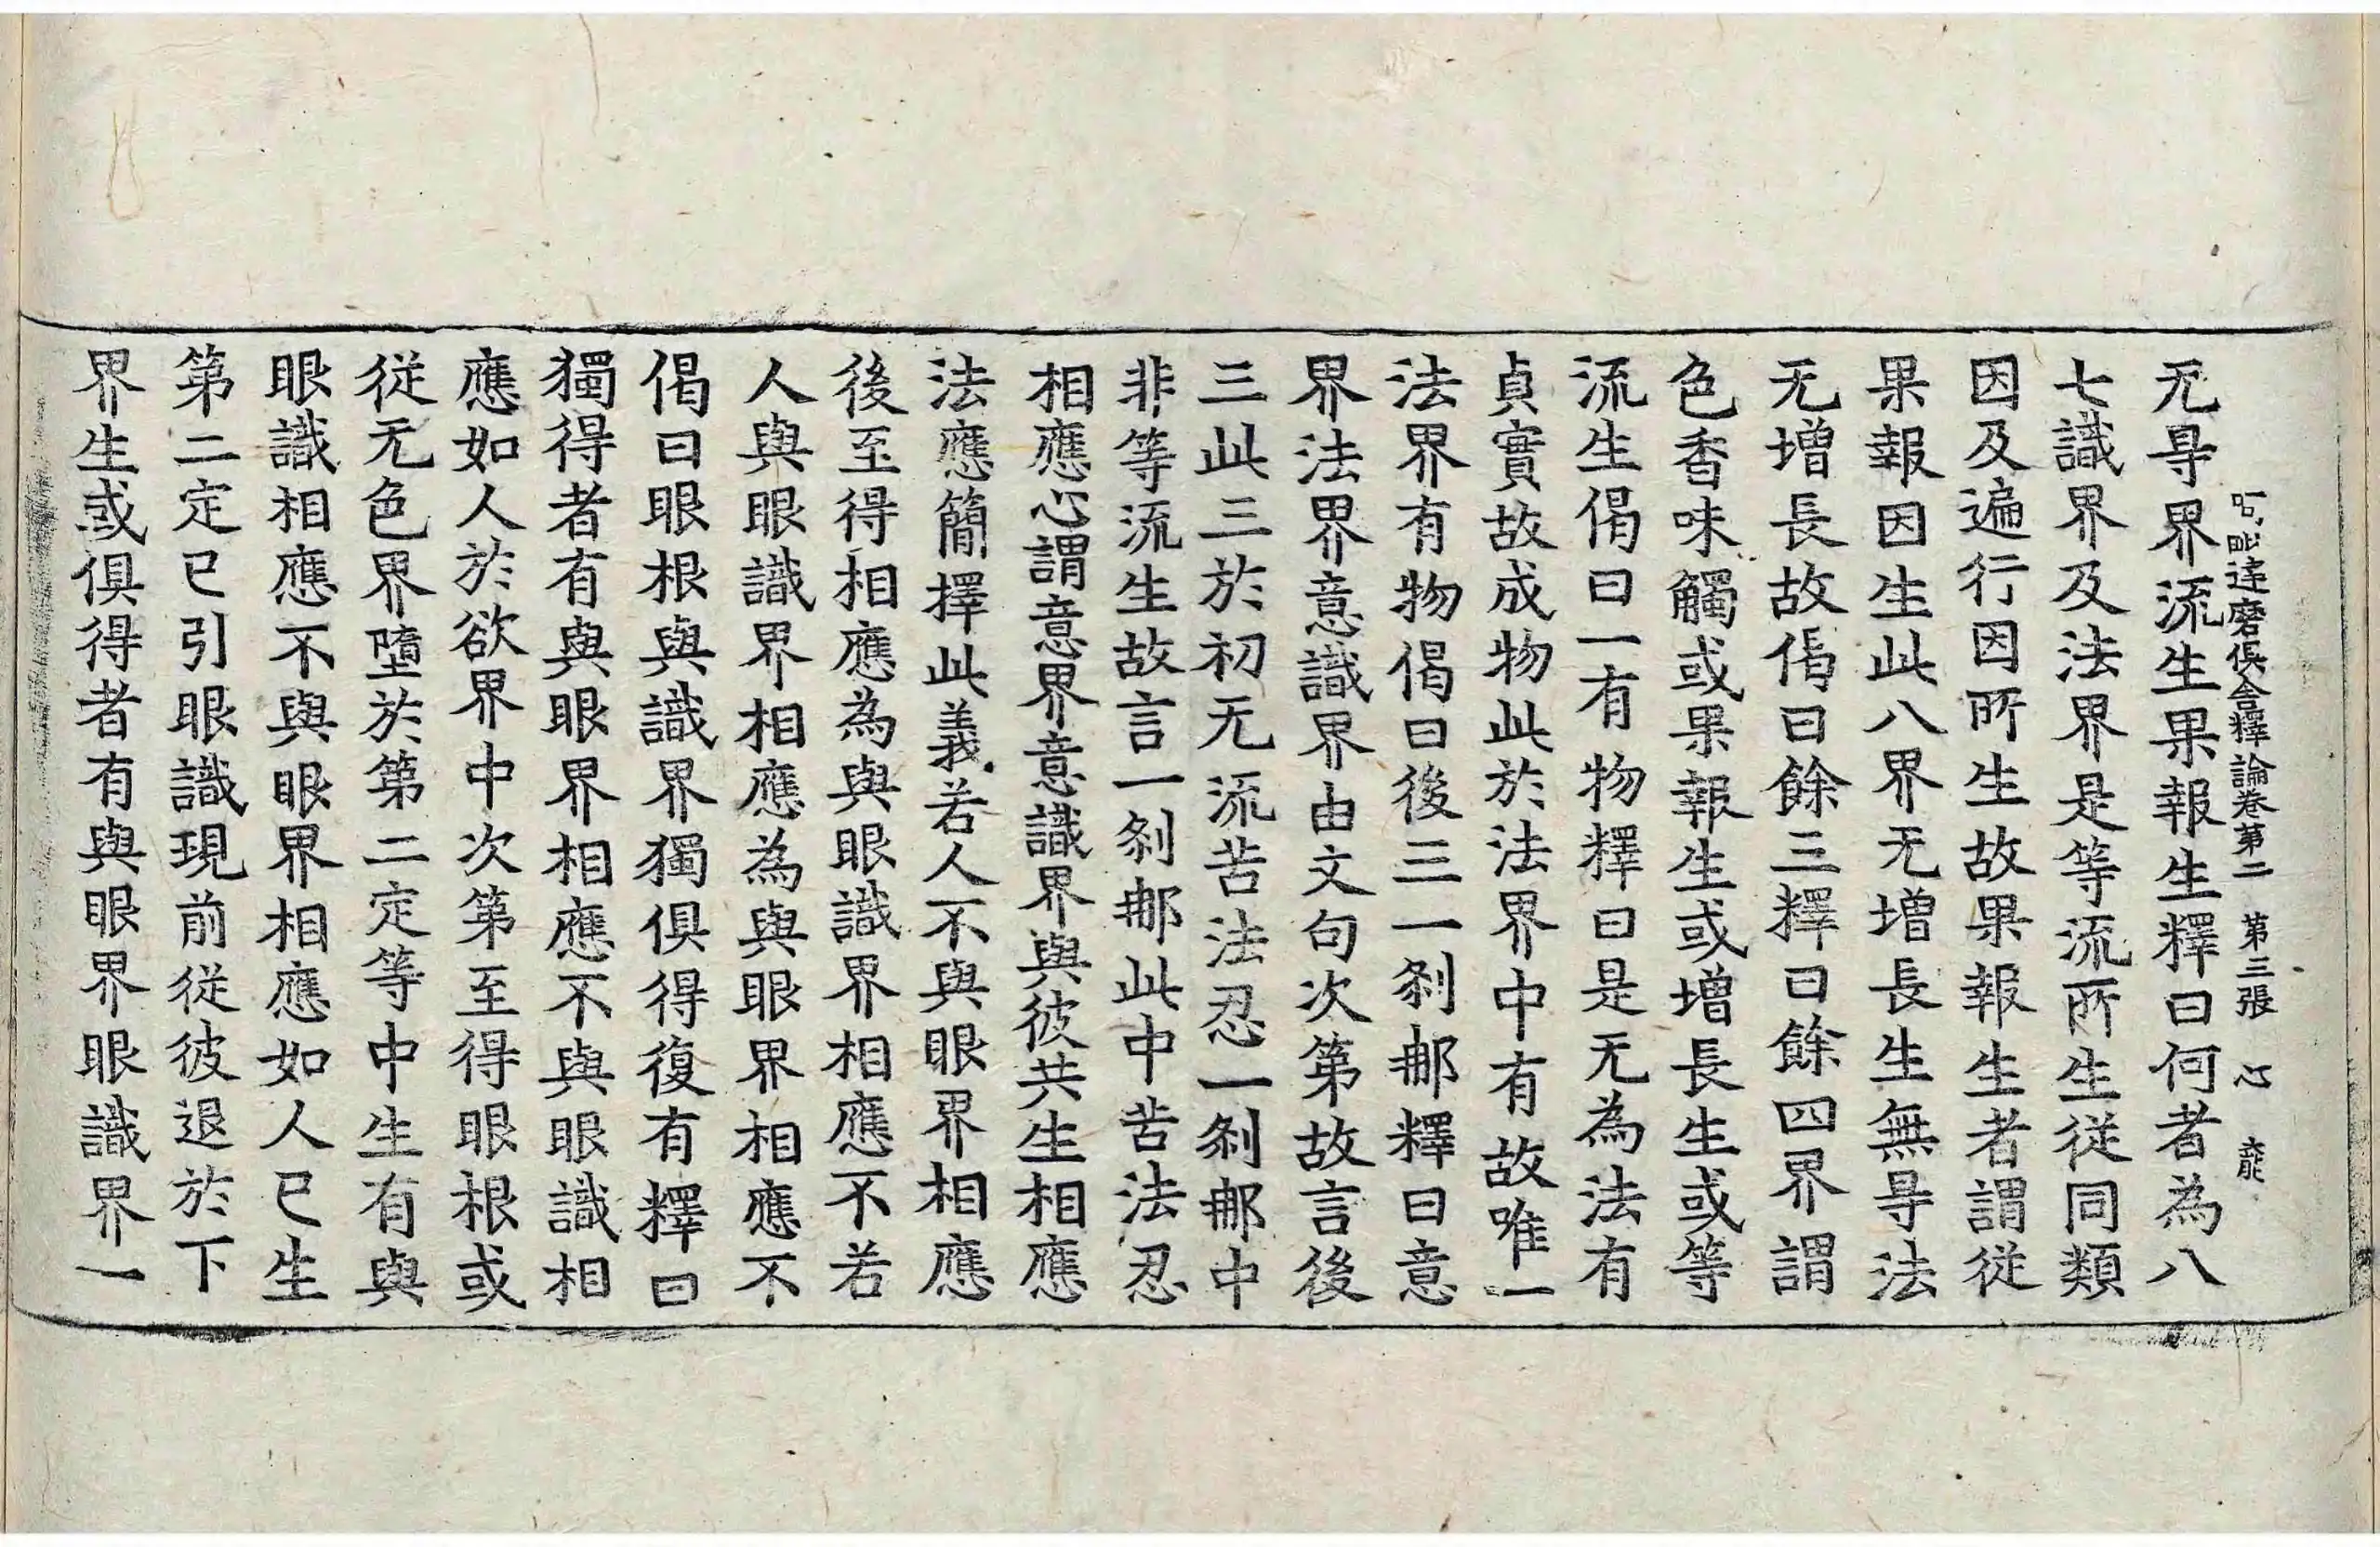 阿毗達磨俱舍釋論卷第二 第三張 心
无㝵界流生果報生釋曰何者為八
七識界及法界是等流所生從同類
因及遍行因所生故果報生者謂從
果報因生此八界无增長生無㝵法
无增長故偈曰餘三釋曰餘四界謂
色香味觸或果報生或增長生或等
流生偈曰一有物釋曰是无為法有
貞實故成物此於法界中有故唯一
法界有物偈曰後三一剎那釋曰意
界法界意識界由文句次第故言後
三此三於初无流苦法忍一剎那中
非等流生故言一剎那此中苦法忍
相應心謂意界意識界與彼共生相應
法應簡擇此義若人不與眼界相應
後至得相應為與眼識界相應不若
人與眼識界相應為與眼界相應不
偈曰眼根與識界獨俱得復有釋曰
獨得者有與眼界相應不與眼識相
應如人於欲界中次第至得眼根或
從无色界墮於第二定等中生有與
眼識相應不與眼界相應如人已生
第二定已引眼識現前從彼退於下
界生或俱得者有與眼界眼識界一